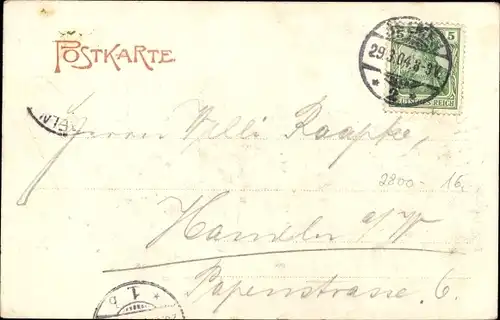 POSTKARTE.
5
29.3.04.8-9V.
* 2 *
DEUTSCHES REICH
ELN
Herrn Willi Raapke,
2800- 16.
Hameln a/W
Papenstrasse 6.
* 1. b